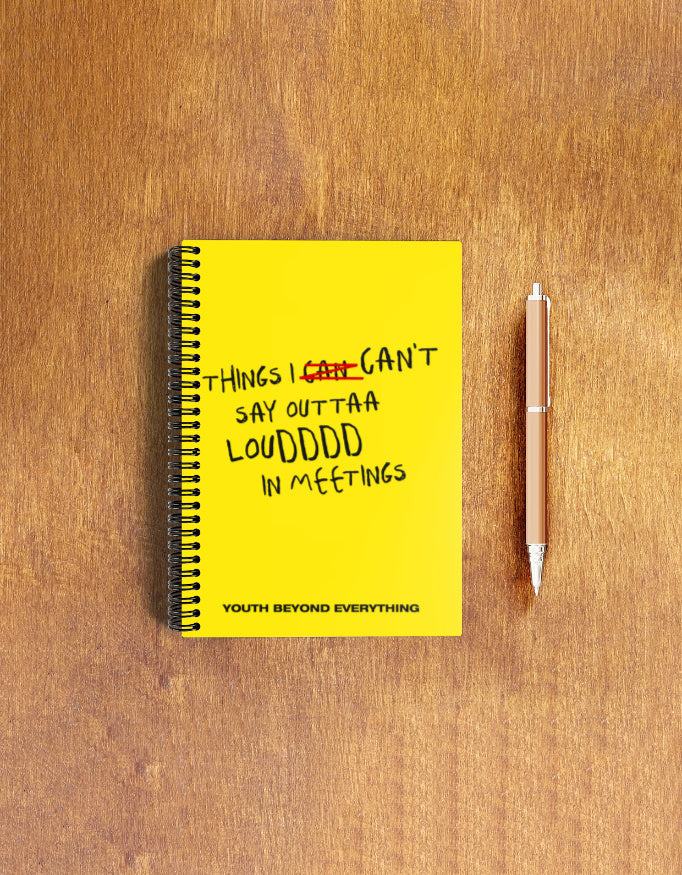 THINGS I CAN CAN'T
SAY OUTTAA
LOUDDDD
IN MEETINGS
YOUTH BEYOND EVERYTHING